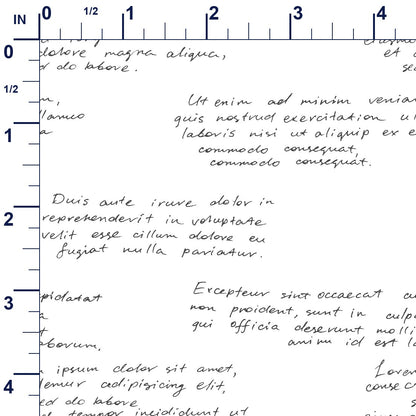 IN 0 1/2 1 2 3 4
0
1/2
1
2
3
4
dolore magna aliqua,
et
do labore.
Ut enim ad minim
quis nostrud exercitation
laboris nisi ut aliquip ex
commodo consequat,
commodo consequat.
Duis aute irure dolor in
reprehenderit in voluptate
velit esse cillum dolore eu
fugiat nulla pariatur.
Excepteur sint occaecat
non proident, sunt in
qui officia deserunt
anim id est
ipsum dolor sit amet,
adipisicing elit,
do labore
tempor incididunt ut